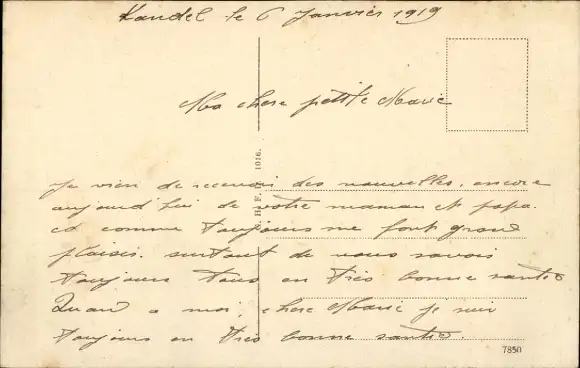 Kandel le 6 Janvier 1919
Ma chere petite Marie
Je vien de recevoir des nouvelles. encore
aujourd hui de votre maman et papa.
et comme toujours me font grand
plaisir. surtout de vous savoir
toujours tous en très bonne santé
Quand a moi, chere Marie je suis
toujours en très bonne santé.
1016.
7850